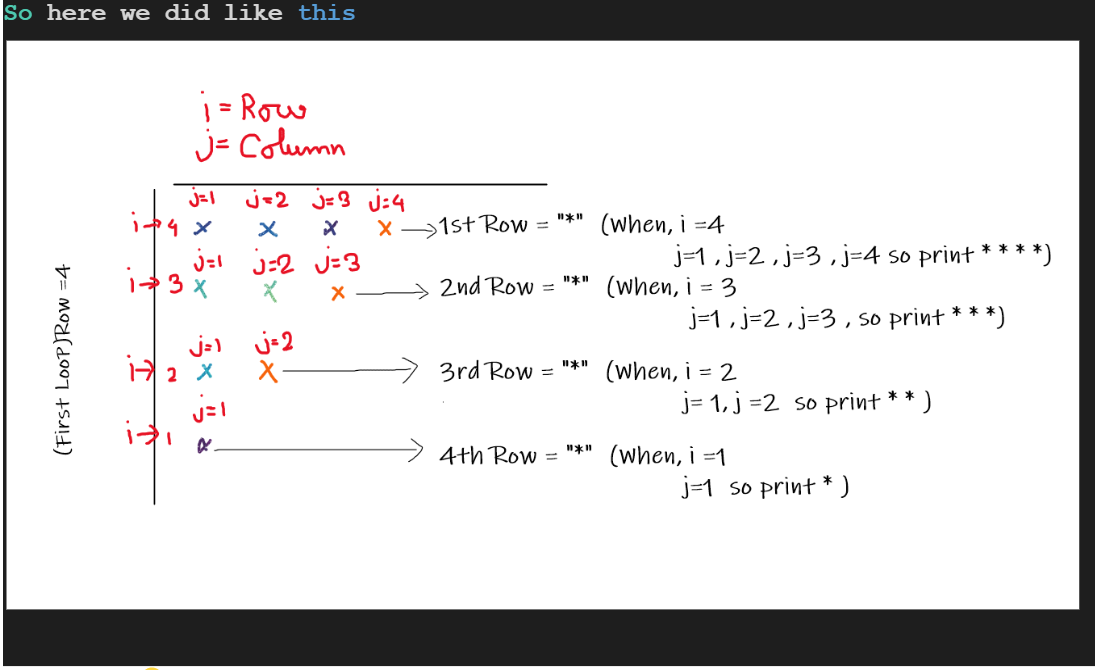 So here we did like this
i = Row
j = Column
j=1 j=2 j=3 j=4
i→4 x x x x →1st Row = "*" (when, i =4
j=1 , j=2 , j=3 , j=4 so print * * * *)
j=1 j=2 j=3
i→3 x x x → 2nd Row = "*" (when, i = 3
j=1 , j=2 , j=3 , so print * * *)
j=1 j=2
i→2 x x → 3rd Row = "*" (when, i = 2
j= 1, j =2 so print * * )
j=1
i→1 x → 4th Row = "*" (when, i =1
j=1 so print * )
(First Loop)Row =4